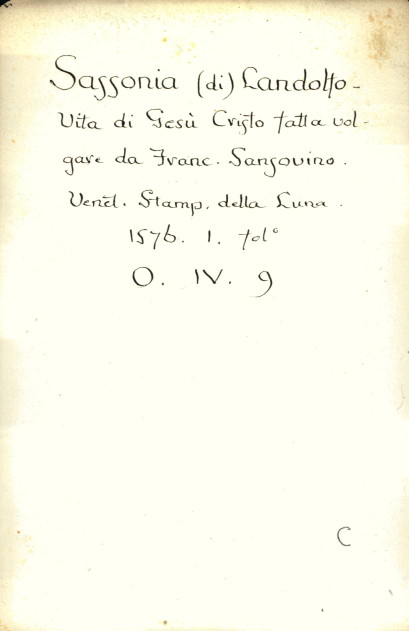 Sassonia (di) Landolfo -
Vita di Gesù Cristo fatta vol-
gare da Franc. Sansovino.
Venet. Stamp. della Luna.
1576. 1. fol°
O. IV. 9
C